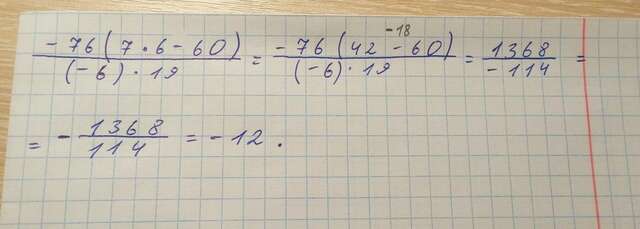 \frac{-76(7 \cdot 6 - 60)}{(-6) \cdot 19} = \frac{-76(42 \overset{-18}{-} 60)}{(-6) \cdot 19} = \frac{1368}{-114} =
= -\frac{1368}{114} = -12.